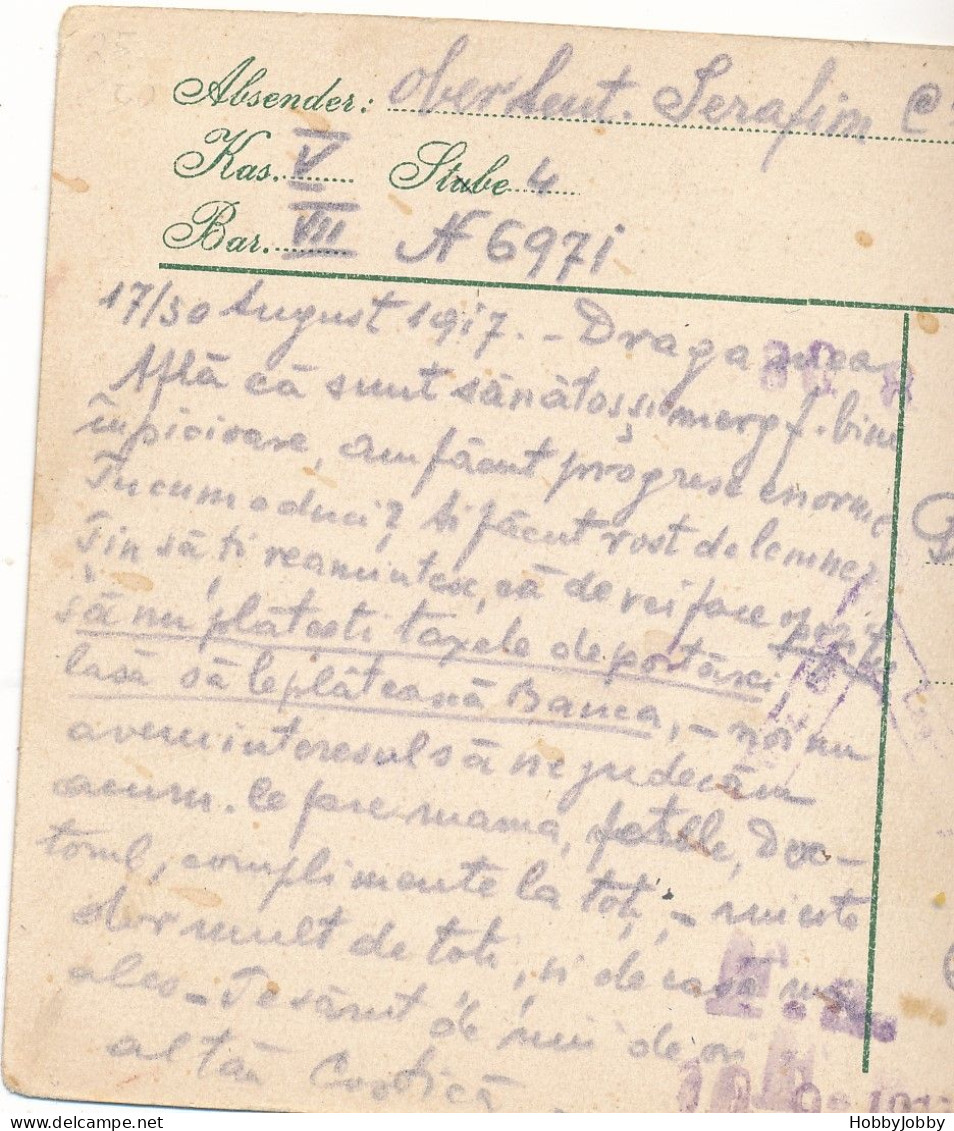 Absender: Oberleut. Serafim C
Kas. V Stube 4
Bar. VII N 6971
17/30 August 1917. - Draga mea
Află că sunt sănătos, și merg f. bine
în picioare, am făcut progrese enorme
Tu cum o duci? Ai făcut rost de lemne?
Țin să-ți reamintesc, că de vei face
să nu plătești taxele de portărei
lasă să le plătească Banca, - noi nu
avem interesul să ne judecăm
acum. Ce face mama, fetele, Doc-
torul, complimente la toți, - mi este
dor mult de toți, și de casă mai
ales - Te sărut de mii de ori
al tău Costică
HobbyJobby